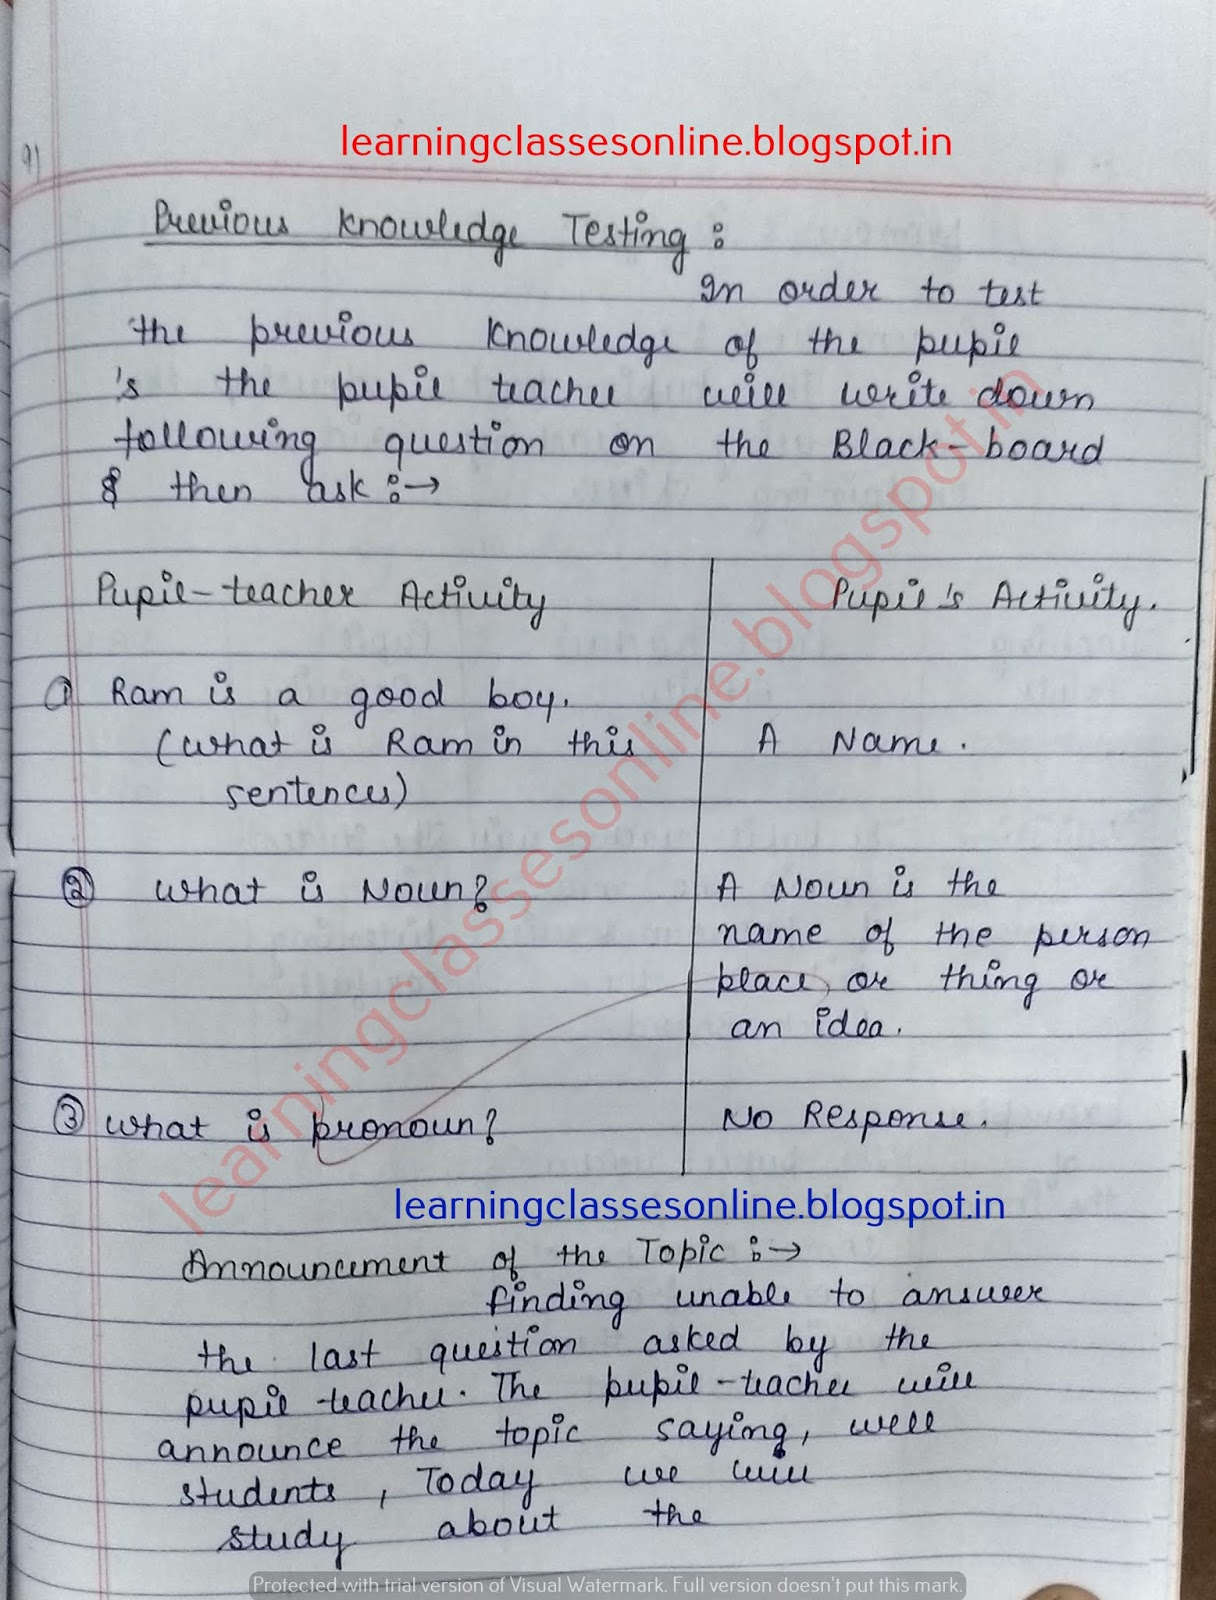 learningclassesonline.blogspot.in
Previous Knowledge Testing :
In order to test
the previous Knowledge of the pupil
's the pupil teacher will write down
following question on the Black-board
& then ask :→
Pupil-teacher Activity
Pupil's Activity.
① Ram is a good boy.
(What is Ram in this
sentences)
A Name.
② What is Noun?
A Noun is the
name of the person
place, or thing or
an idea.
③ What is pronoun?
No Response.
learningclassesonline.blogspot.in
learningclassesonline.blogspot.in
Announcement of the Topic :→
finding unable to answer
the last question asked by the
pupil-teacher. The pupil-teacher will
announce the topic saying, well
students, Today we will
study about the
Protected with trial version of Visual Watermark. Full version doesn't put this mark.